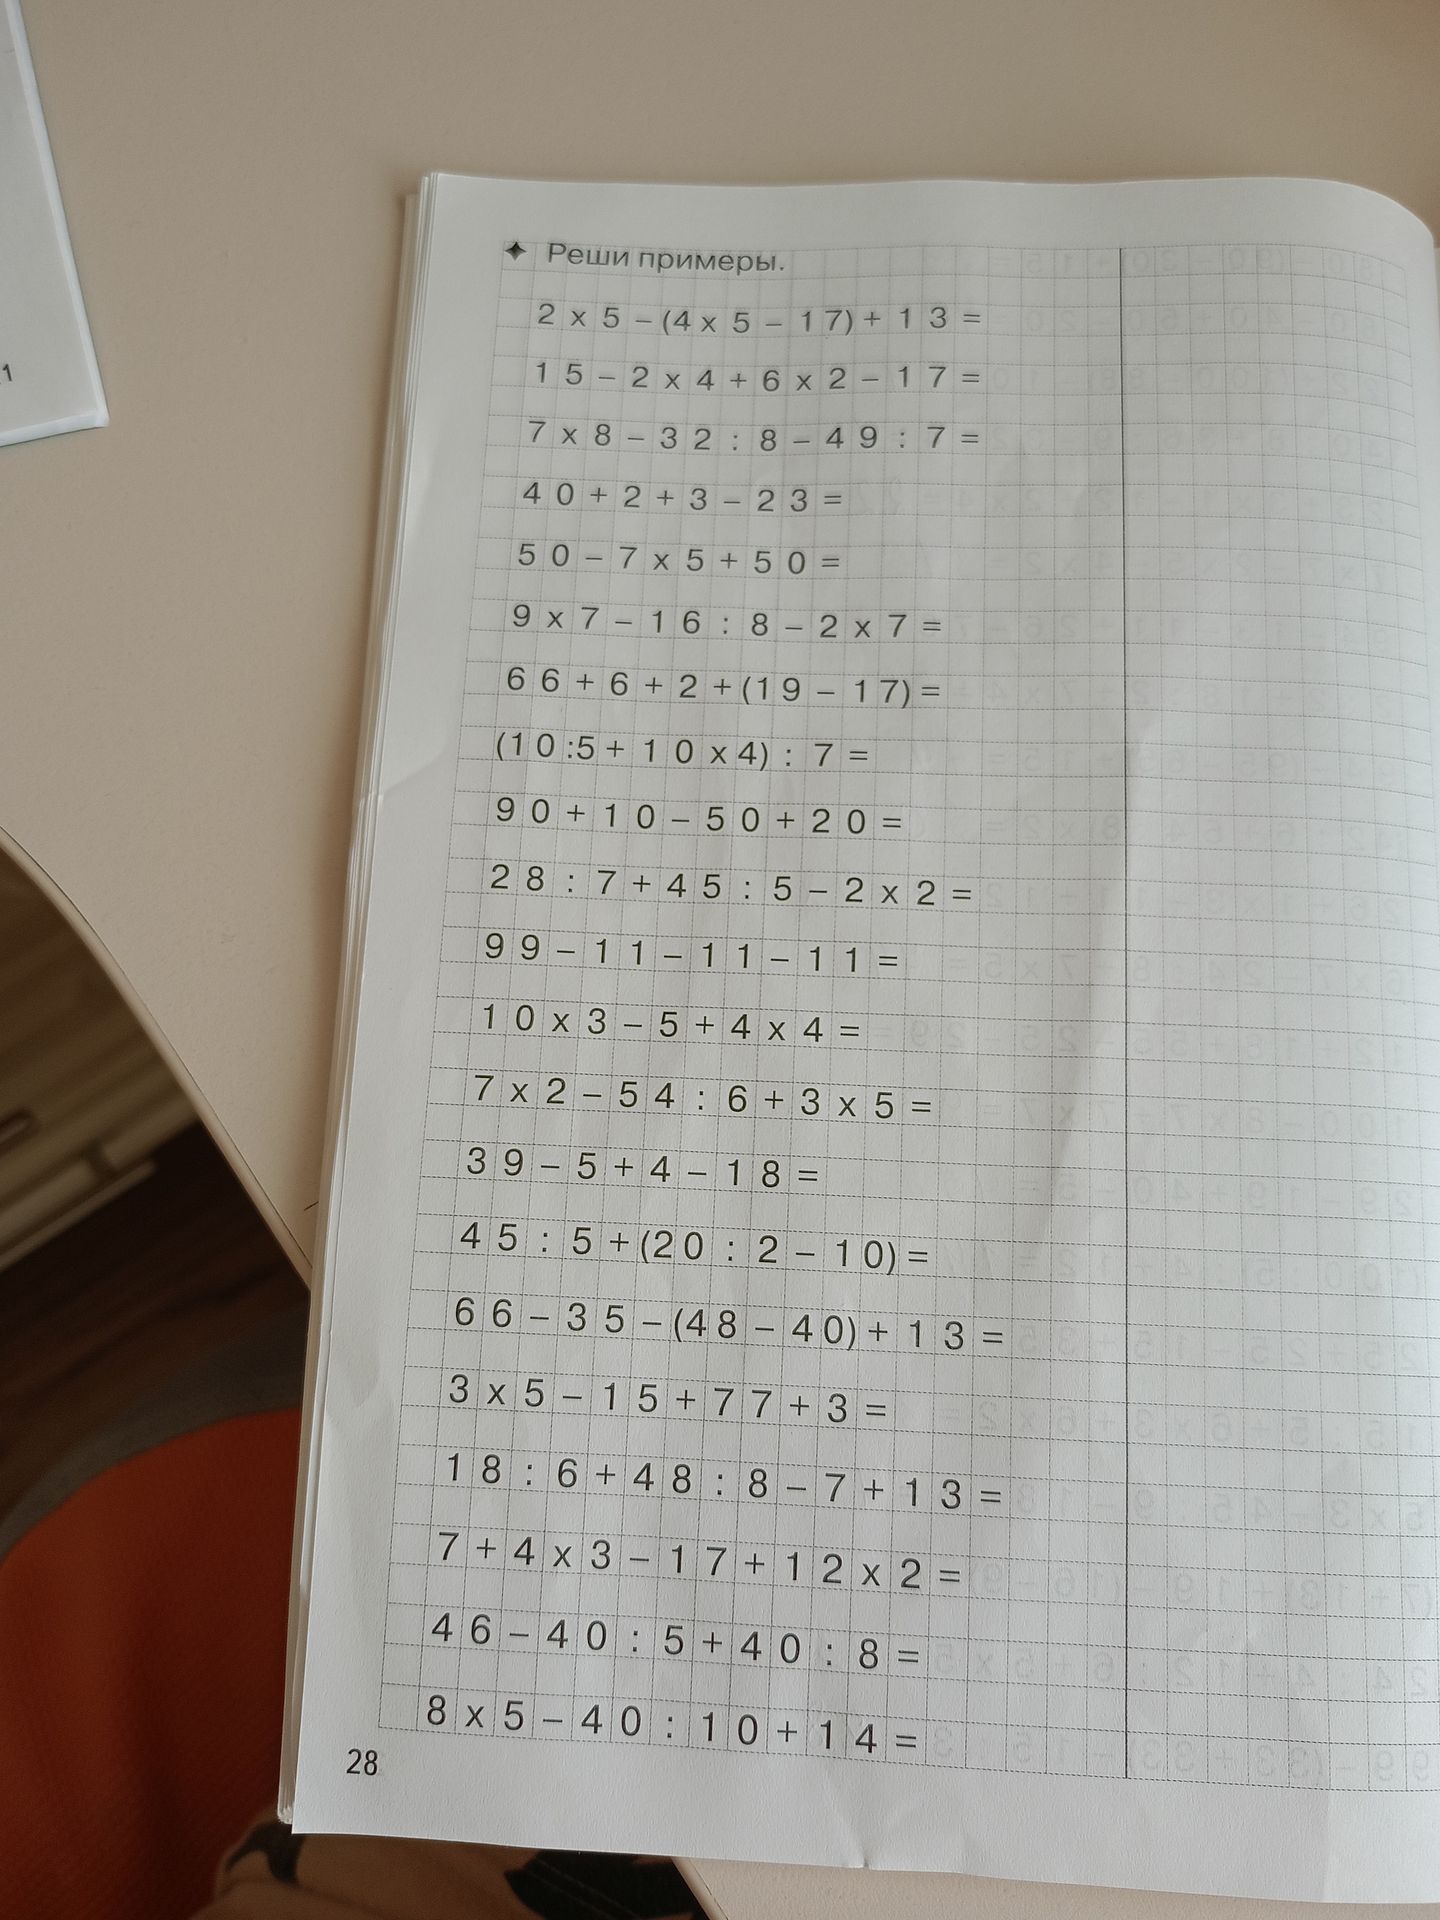 1
✦ Реши примеры.
2 x 5 – (4 x 5 – 17) + 13 =
15 – 2 x 4 + 6 x 2 – 17 =
7 x 8 – 32 : 8 – 49 : 7 =
40 + 2 + 3 – 23 =
50 – 7 x 5 + 50 =
9 x 7 – 16 : 8 – 2 x 7 =
66 + 6 + 2 + (19 – 17) =
(10 :5 + 10 x 4) : 7 =
90 + 10 – 50 + 20 =
28 : 7 + 45 : 5 – 2 x 2 =
99 – 11 – 11 – 11 =
10 x 3 – 5 + 4 x 4 =
7 x 2 – 54 : 6 + 3 x 5 =
39 – 5 + 4 – 18 =
45 : 5 + (20 : 2 – 10) =
66 – 35 – (48 – 40) + 13 =
3 x 5 – 15 + 77 + 3 =
18 : 6 + 48 : 8 – 7 + 13 =
7 + 4 x 3 – 17 + 12 x 2 =
46 – 40 : 5 + 40 : 8 =
8 x 5 – 40 : 10 + 14 =
28